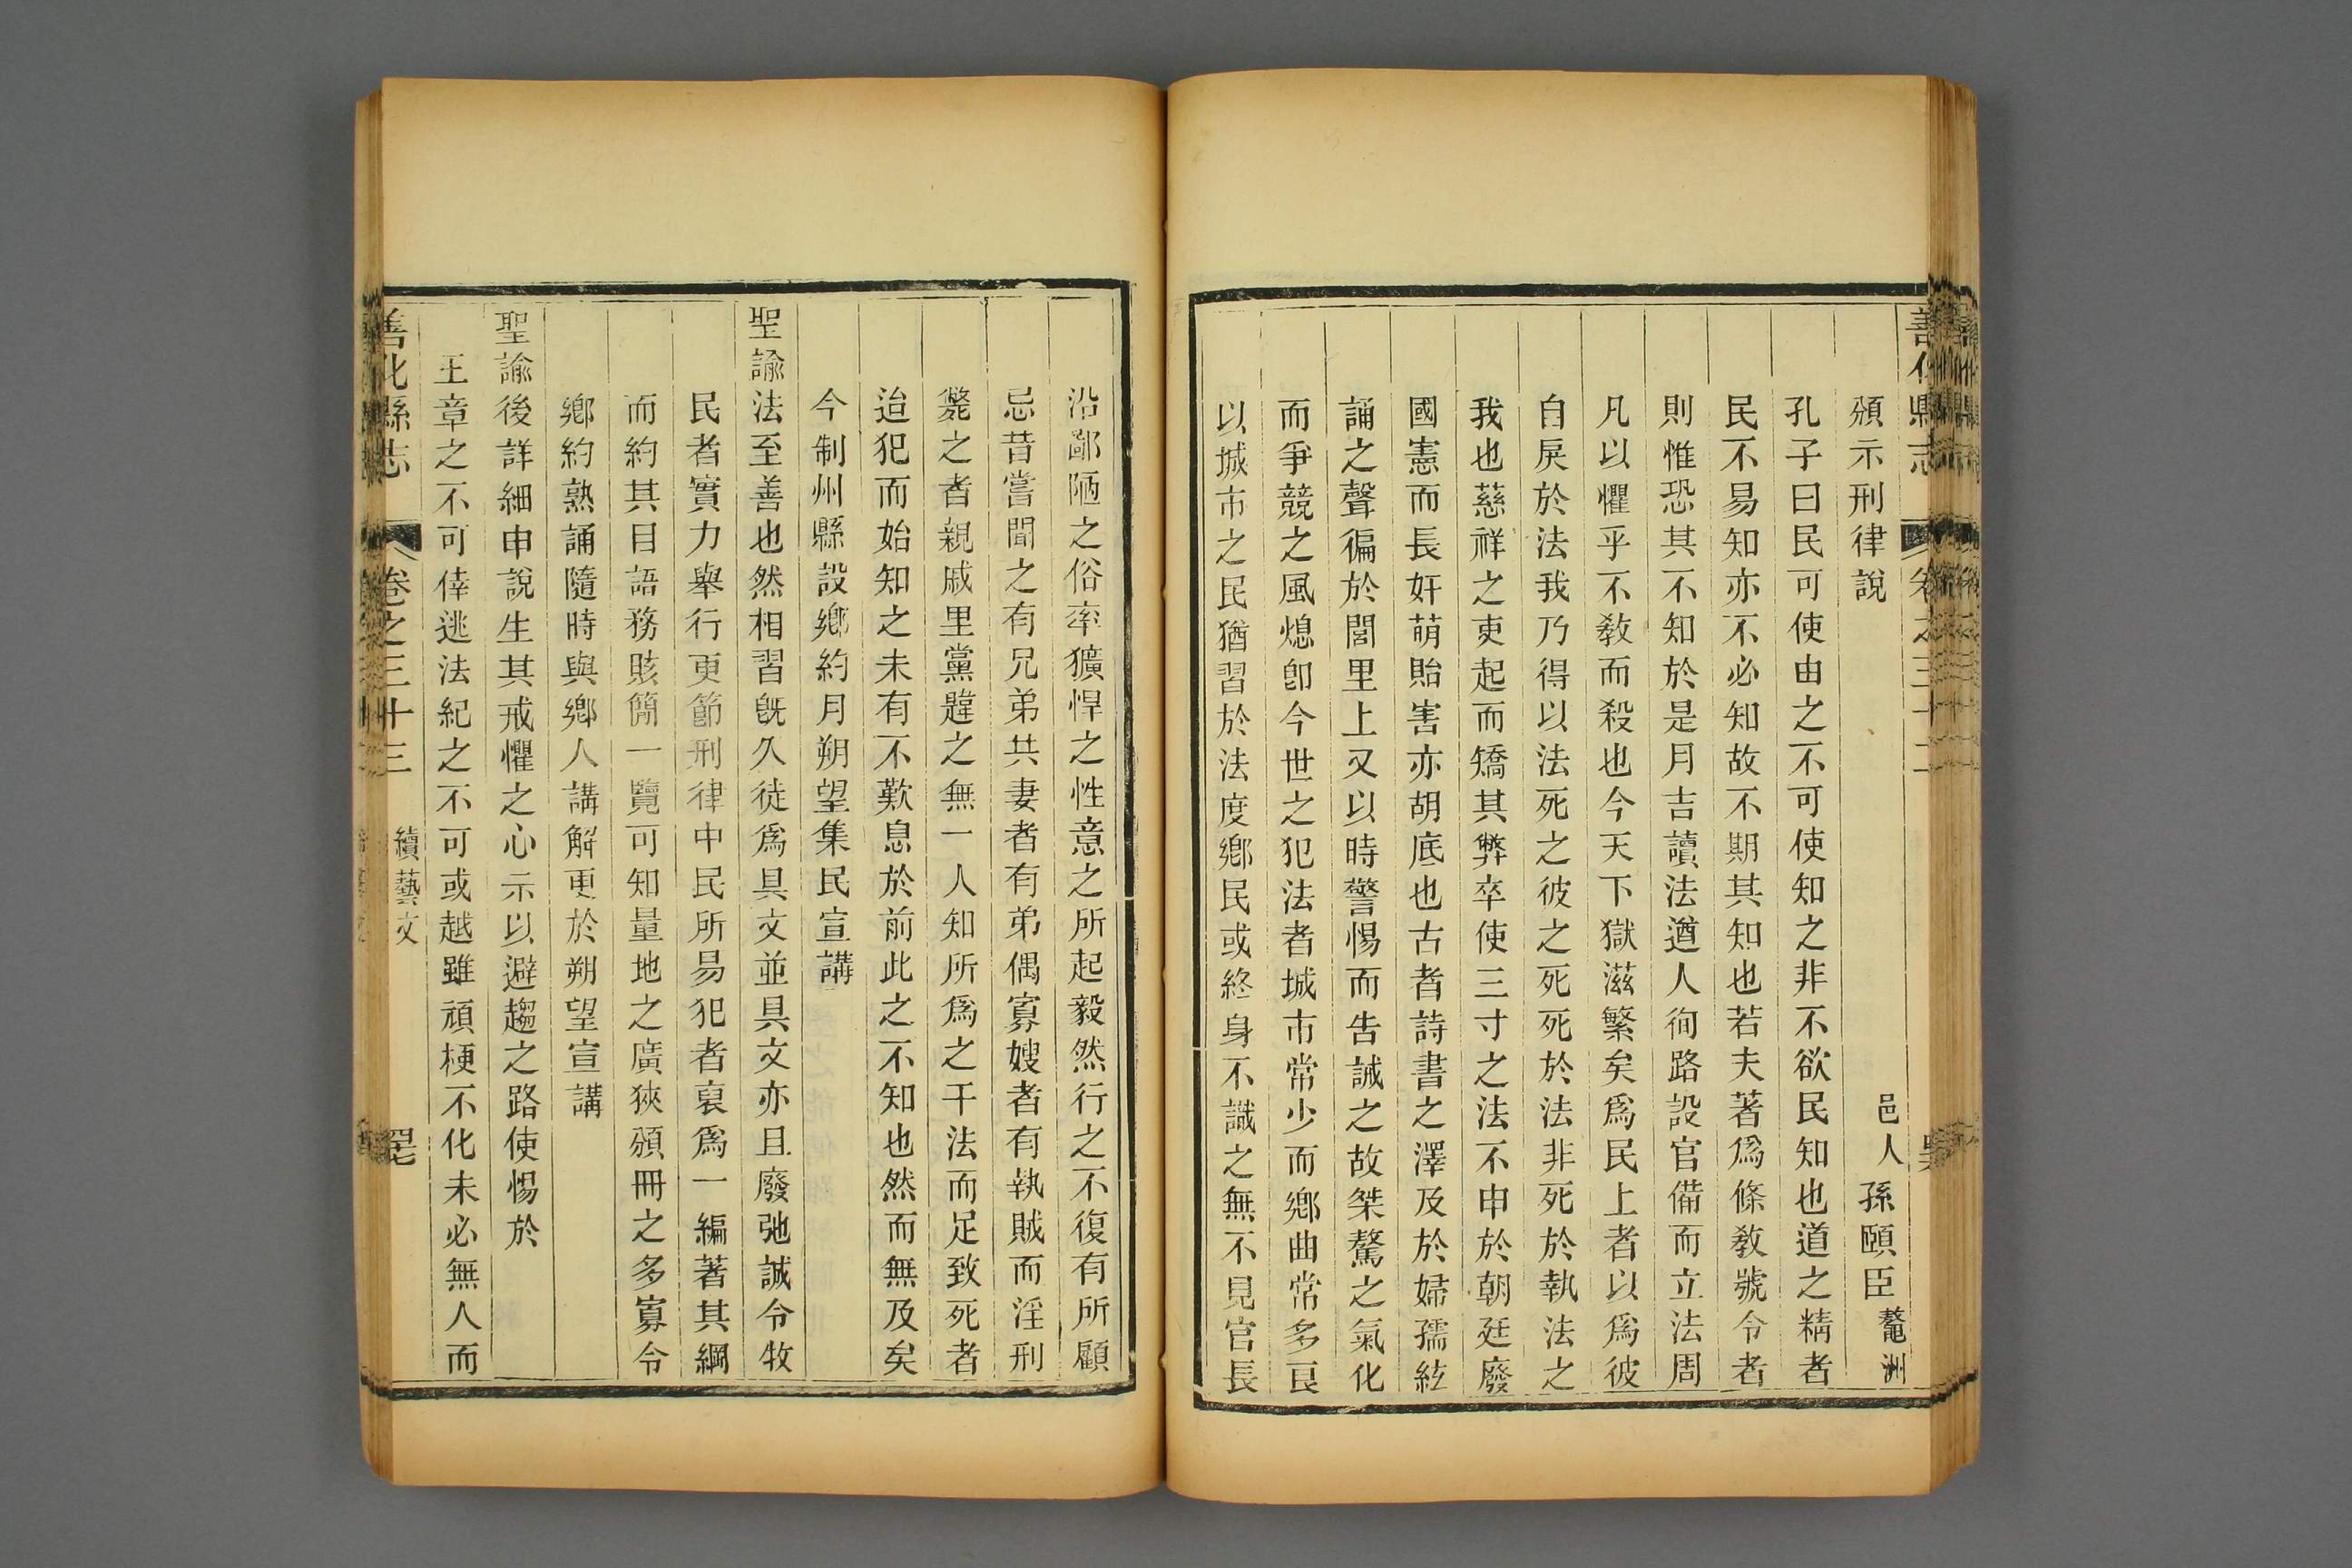 頒示刑律說
邑人孫頤臣鼇洲
孔子曰民可使由之不可使知之非不欲民知也道之精者
民不易知亦不必知故不期其知也若夫著爲條敎號令者
則惟恐其不知於是月吉讀法遒人徇路設官備而立法周
凡以懼乎不敎而殺也今天下獄滋繁矣爲民上者以爲彼
自戾於法我乃得以法死之彼之死死於法非死於執法之
我也慈祥之吏起而矯其弊卒使三寸之法不申於朝廷廢
國憲而長奸萌貽害亦胡底也古者詩書之澤及於婦孺絃
誦之聲徧於閭里上又以時警惕而告誡之故桀驁之氣化
而爭競之風熄卽今世之犯法者城市常少而鄕曲常多良
以城市之民猶習於法度鄕民或終身不識之無不見官長
沿鄙陋之俗率獷悍之性意之所起毅然行之不復有所顧
忌昔嘗聞之有兄弟共妻者有弟偶寡嫂者有執賊而淫刑
斃之者親戚里黨韙之無一人知所爲之干法而足致死者
迨犯而始知之未有不歎息於前此之不知也然而無及矣
今制州縣設鄕約月朔望集民宣講
聖諭法至善也然相習旣久徒爲具文並具文亦且廢弛誠令牧
民者實力舉行更節刑律中民所易犯者裒爲一編著其綱
而約其目語務賅簡一覽可知量地之廣狹頒冊之多寡令
鄕約熟誦隨時與鄕人講解更於朔望宣講
聖諭後詳細申說生其戒懼之心示以避趨之路使惕於
王章之不可倖逃法紀之不可或越雖頑梗不化未必無人而
善化縣志 卷之三十三 續藝文 罕七